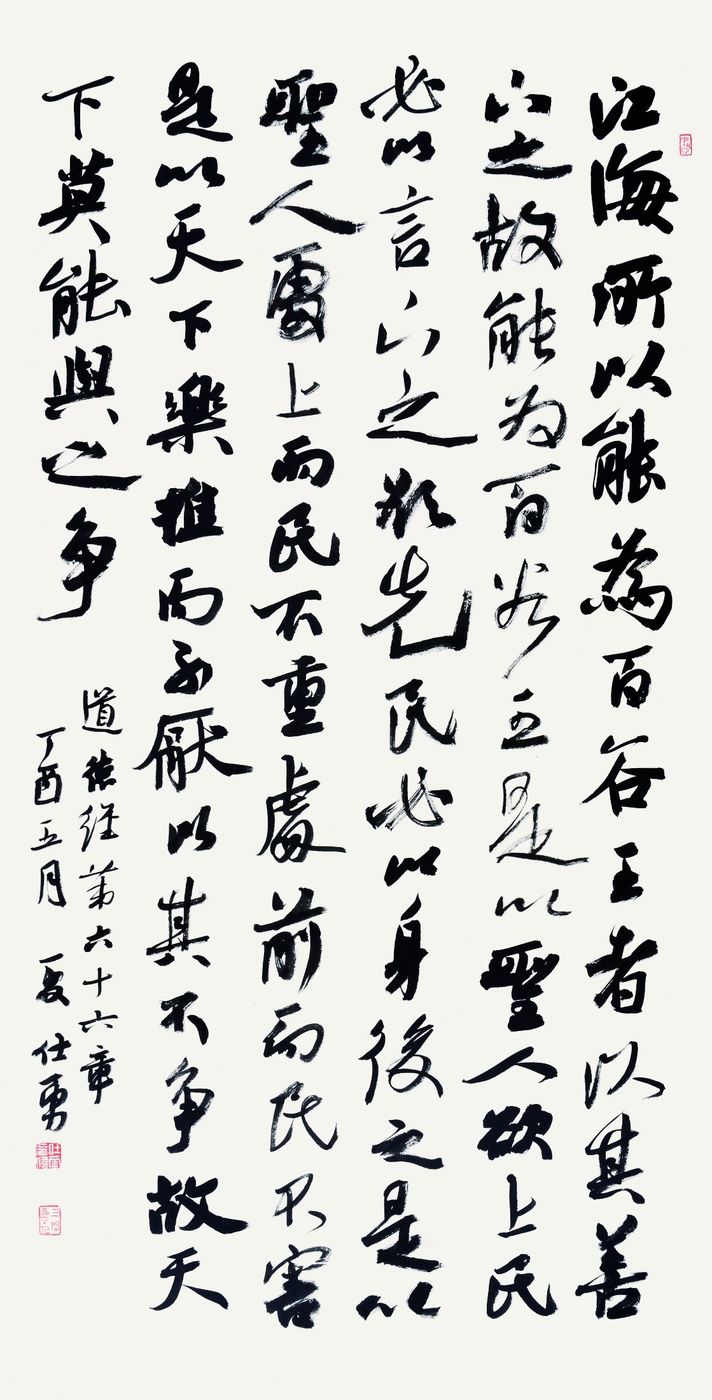 江海所以能為百谷王者以其善
下之故能为百谷王是以聖人欲上民
必以言下之欲先民必以身後之是以
聖人處上而民不重處前而民不害
是以天下樂推而不厭以其不争故天
下莫能與之争
道德经第六十六章
丁酉五月 夏仕勇